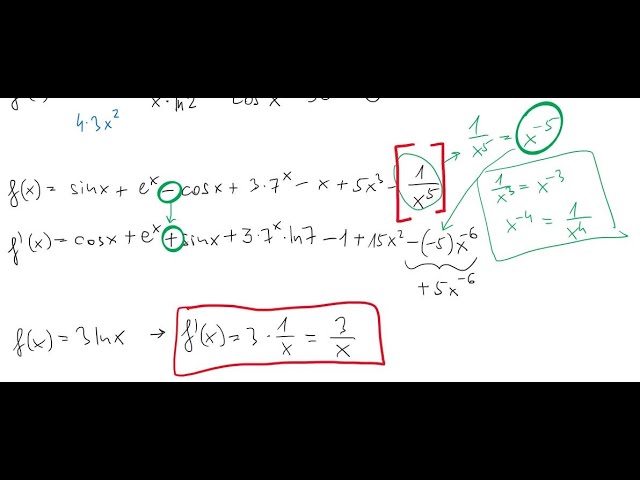 4·3x²
x·ln2
cos²x
f(x) = sinx + eˣ − cosx + 3·7ˣ − x + 5x³ − [1/x⁵] → 1/x⁵ = x⁻⁵
1/x³ = x⁻³
x⁻⁴ = 1/x⁴
f'(x) = cosx + eˣ + sinx + 3·7ˣ·ln7 − 1 + 15x² − (−5)x⁻⁶
+ 5x⁻⁶
f(x) = 3lnx → f'(x) = 3 · 1/x = 3/x